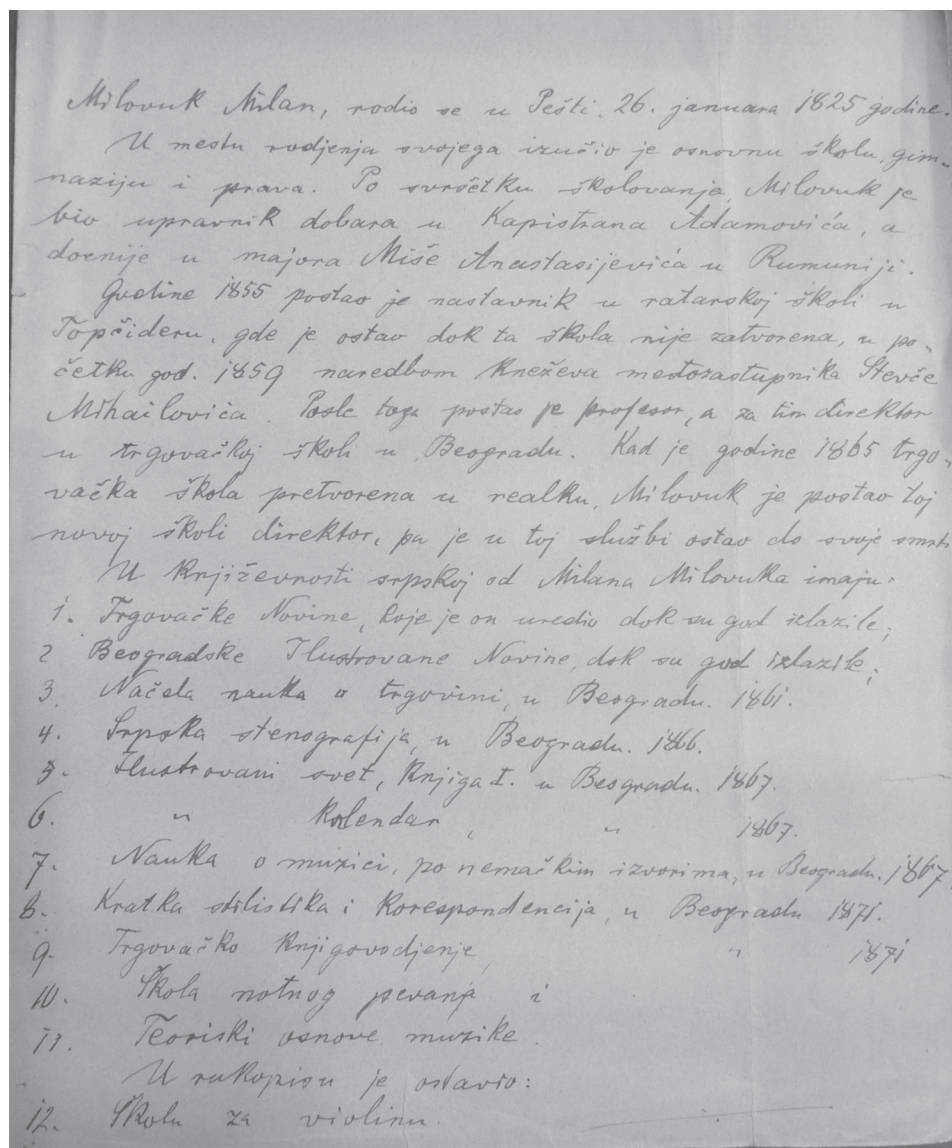 Milovuk Milan, rodio se u Pešti. 26. januara 1825 godine.
U mestu rodjenja svojega izučio je osnovnu školu, gim-
naziju i prava. Po svršetku školovanja, Milovuk je
bio upravnik dobara u Kapistrana Adamovića, a
docnije u majora Miše Anastasijevića u Rumuniji.
Godine 1855 postao je nastavnik u ratarskoj školi u
Topčideru, gde je ostao dok ta škola nije zatvorena, u po-
četku god. 1859 naredbom Kneževa mestozastupnika Stevče
Mihailovića. Posle toga postao je profesor, a za tim direktor
u trgovačkoj školi u Beogradu. Kad je godine 1865 trgo-
vačka škola pretvorena u realku, Milovuk je postao toj
novoj školi direktor, pa je u toj službi ostao do svoje smrti
U Književnosti srpskoj od Milana Milovuka imaju:
1. Trgovačke Novine, koje je on uredio dok su god izlazile;
2 Beogradske Ilustrovane Novine, dok su god izlazile;
3. Načela nauka o trgovini, u Beogradu. 1861.
4. Srpska stenografija, u Beogradu. 1866.
5. Ilustrovani svet, Knjiga I. u Beogradu. 1867.
6. " Kalendar, " 1867.
7. Nauka o muzici, po nemačkim izvorima, u Beogradu. 1867
8. Kratka stilistika i Korespondencija, u Beogradu 1871.
9. Trgovačko Knjigovodjenje, " 1871
10. Škola notnog pevanja i
11. Teoriski osnove muzike.
U rukopisu je ostavio:
12. Školu za violinu.